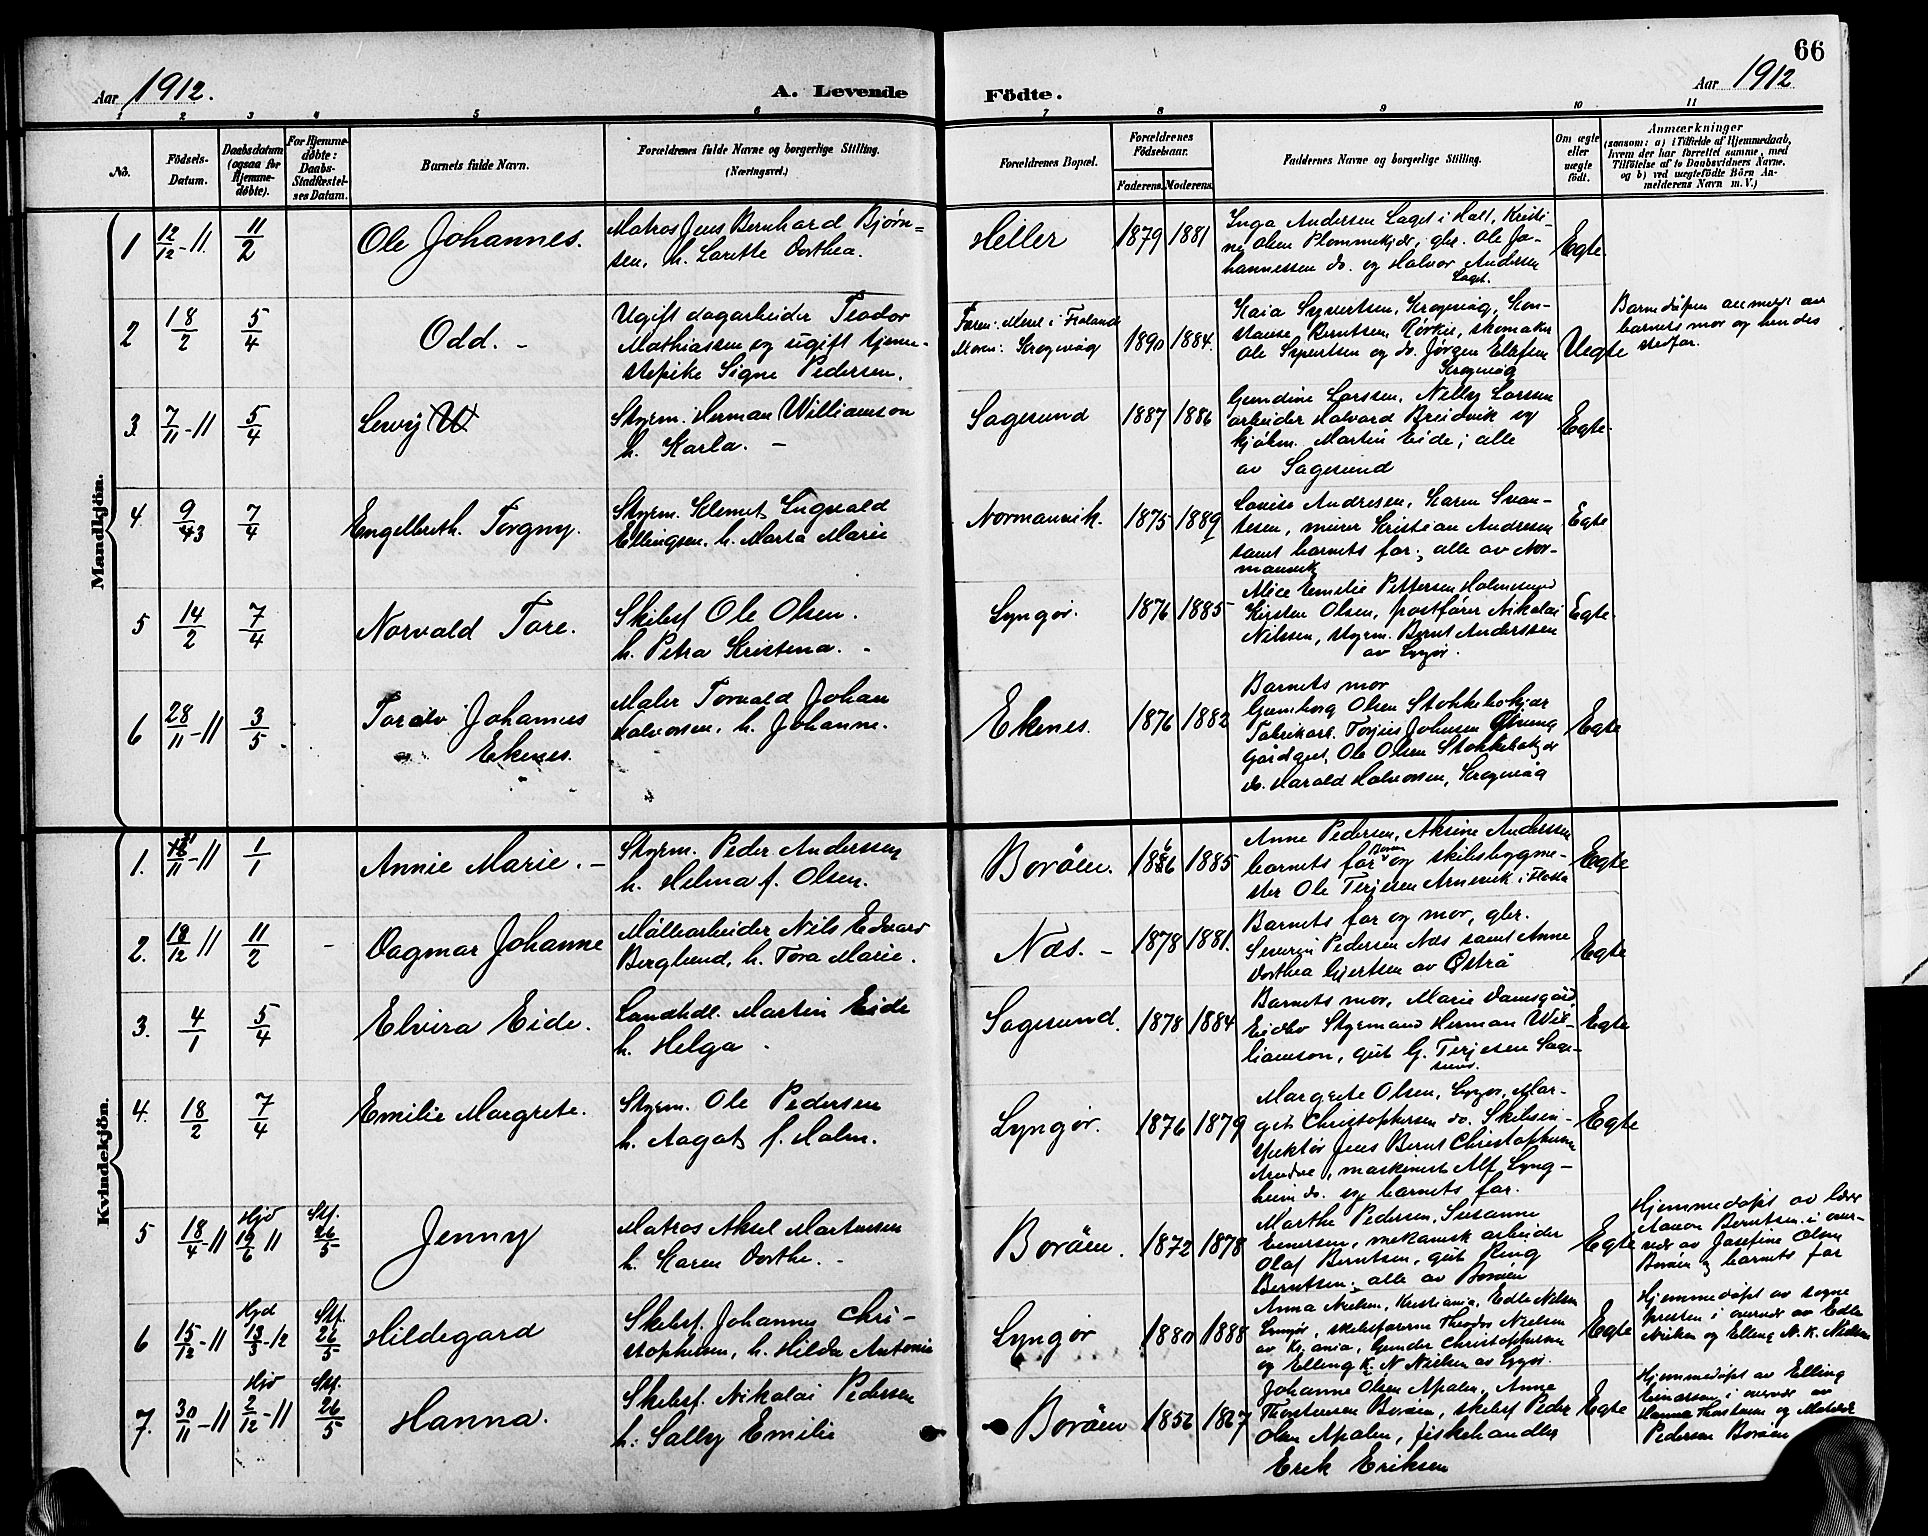 66
Aar 1912. A. Levende Födte. Aar 1912
1 2 3 4 5 6 7 8 9 10 11
No. Födsels-Datum. Daabsdatum (ogsaa for Hjemme-döbte). For Hjemme-döbte: Daabs-Stadfæstel-ses Datum. Barnets fulde Navn. Forældrenes fulde Navne og borgerlige Stilling. (Næringsvei.) Forældrenes Bopæl. Forældrenes Födselsaar. Faderens. Moderens. Faddernes Navne og borgerlige Stilling. Om ægte eller uægte födt. Anmærkninger (saasom: a) i Tilfælde af Hjemmedaab, hvem der har forrettet samme, med Tilföielse af to Daabsvidners Navne, og b) ved uægtefödte Börn An-melderens Navn m. V.)
Mandkjön.
1 12/12-11 11/2 Ole Johannes. Matros Jens Bernhard Bjørn=
sen, h. Lovette Dorthea.
Heller 1879 1881 Inga Andersen Laget i Holt, Kristi-
ne Olsen Plommekjær, gbr. Ole Jo-
hannessen do. og Halvor Andersen
Laget.
Egte.
2 18/2 5/4 Odd. - Ugift dagarbeider Teodor
Mathiassen og ugift tjene-
stepike Signe Pedersen.
Faren: Mesel i Froland
Moren: Krogevåg
1890 1884. Kaia Syvertsen, Krogevåg, Kon-
stanse Berntsen Rørkil, skomaker
Ole Syvertsen og do. Jørgen Ellefsen
Krogevåg
Uegte
Barnedåpen anmeldt av
barnets mor og hendes
stedfar.
3. 7/11-11 5/4 Lewy W Styrm. Herman Williamson
h. Karla. -
Sagesund 1887 1886 Gundine Larssen, Nelly Larssen
arbeider Halvard Breidvik og
kjøbm. Martin Eide; alle
av Sagesund
Egte.
4. 9/3 7/4 Engelbreth Torgny. Styrm. Klemet Ingvald
Ellingsen. h. Marta Marie
Normannvik. 1875 1889 Lovise Andresen, Karen Svan-
tesen, murer Kristian Andresen
samt barnets far; alle av Nor-
mannvik
Egte
5 14/2 7/4 Norvald Tore. Skibsf Ole Olsen.
h. Petra Kristina. -
Lyngør. 1876 1885 Alice Emilie Pettersen Holmesund
Kirsten Olsen, postfører Nikolai
Nilssen, styrm. Bernt Anderssen
av Lyngør.
Egte.
6 28/11-11 3/5 Toralv Johannes
Ekenes.
Maler Torvald Johan
Halvorsen. h. Johanne.
Ekenes. 1876 1882 Barnets mor
Gunnborg Olsen Stokkebokjær
Fabrikarb. Torjus Johnsen
Gårdgut. Ole Olsen Stokkebokjær
do. Harald Halvorsen, Krogevåg
Egte
Kvindekjön.
1. 11-11 1/1 Annie Marie. - Styrm. Peder Anderssen
h. Helma f. Olsen.
Borøen. 1885 Anne Pedersen, Aksine Anderssen
barnets far og skibsbygme-
ster Ole Terjesen Arnevik i Flosta
Egte
2. 18/12 11 11/2 - Dagmar Johanne Møllearbeider Nils Edvard
Berglund, h. Tora Marie.
Næs. - 1878 1881. Barnets far og mor, gbr.
Severin Pedersen Næs samt Anne
Dorthea Gjertsen av Østrå
Egte
3. 4/1 5/4 Elvira Eide. Landhdl. Martin Eide
h. Helga.
Sagesund. 1878 1884 Barnets mor, Marie Damsgård,
Eidbo Styrmand Herman Wil-
liamson, gut G. Terjesen Sage-
sund.
Egte
4. 18/2 7/4 Emilie Margrete. Styrm. Ole Pedersen
h. Aagot f. Holm.
Lyngør. 1876 1879 Margrete Olsen, Lyngør, Mar-
git Christophersen do. Skibsin-
spektør Jens Bernt Christophersen
Arendal, maskinist Alf Lyng-
heim do. og barnets far.
Egte
5 18/4-11 Hjd 19/6 11 Stf. 26/5 Jenny Matros Aksel Martinsen
h. Karen Dorthe. -
Borøen. 1872 1878 Marthe Pedersen, Susanne
Evensen, mekanisk arbeider
Olaf Berntsen, gut King
Berntsen; alle av Borøen
Egte
Hjemmedøpt av lærer
Aanon Berntsen i over-
vær av Josefine Olsen
Borøen og barnets far
6 15/12-11 Hjd 13/3-12 Stf. 26/5 Hildegard Skibsf. Johannes Chri-
stophersen, h. Hilda Antonie
Lyngør 1880 1888 Anna Nielsen, Kristiania, Edle Nielsen
Lyngør, skibsførerne Theodor Nielsen
av Kr.ania, Gunder Christophersen
og Elling K. N Nielsen av Lyngør.
Egte
Hjemmedøpt av sogne
presten i overvær av Edle
Nielsen og Elling N. K. Nielsen
7. 30/11-11 Hjd 2/12-11 Stf. 26/5 Hanna. Skibsf. Nikolai Pedersen
h. Sally Emilie
Borøen 1856 1867 Johanne Olsen Apalen, Anne
Thorstensen Borøen, skibsf Peder
Olsen Apalen, fiskehandler
Erik Eriksen
Egte
Hjemmedøpt av Elling
Einarsen i overvær av
Hanna Thorstensen og Mathilde
Pedersen Borøen